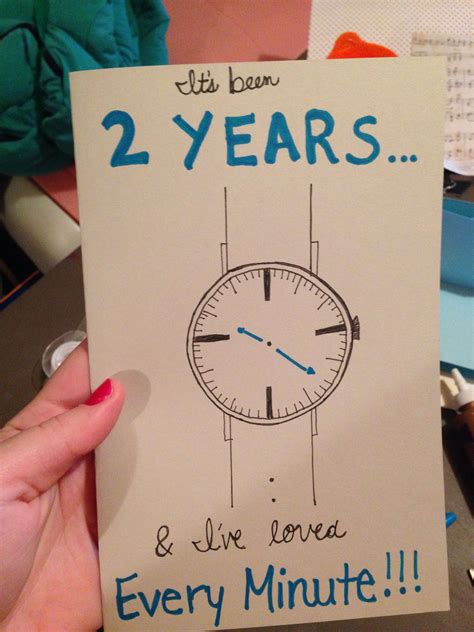 It's been
2 YEARS...
& I've loved
Every Minute!!!